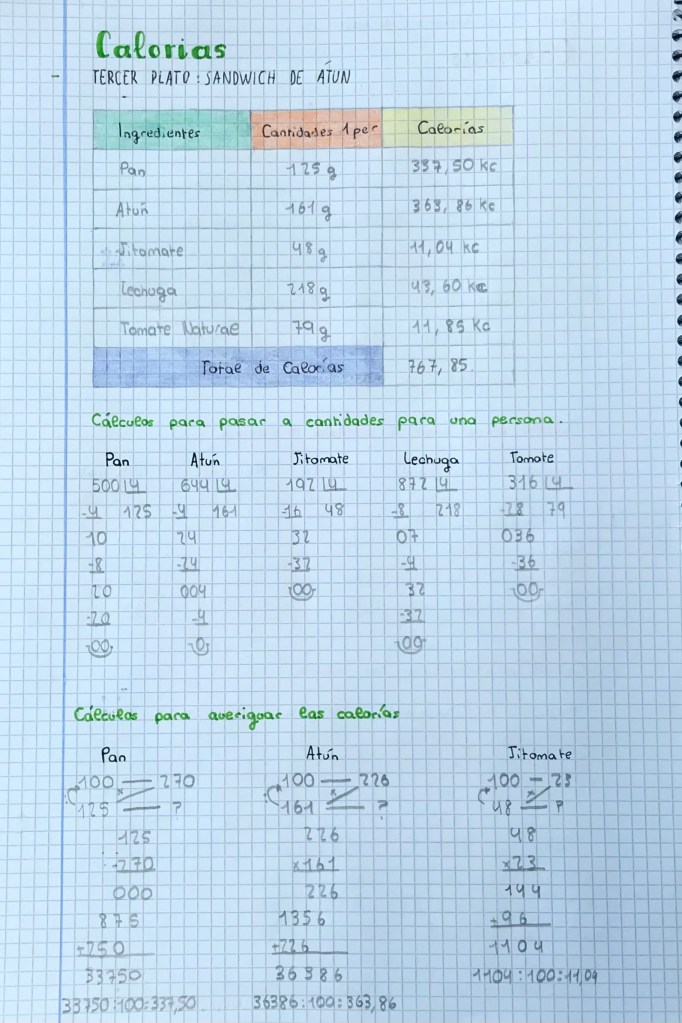 Calorias
- TERCER PLATO : SANDWICH DE ÁTUN
Ingredientes Cantidades 1 per Calorías
Pan 125 g 337,50 kc
Atún 161 g 363,86 kc
Jitomate 48 g 11,04 kc
Lechuga 218 g 43,60 kc
Tomate Natural 79 g 11,85 Kc
Total de Calorías 767,85
Cálculos para pasar a cantidades para una persona.
Pan Atún Jitomate Lechuga Tomate
500 4 644 4 192 4 872 4 316 4
-4 125 -4 161 -16 48 -8 218 -28 79
10 24 32 07 036
-8 -24 -32 -4 -36
20 004 00 32 00
-20 -4 -32
00 0 00
Cálculos para averiguar las calorías
Pan Atún Jitomate
100 — 270 100 — 226 100 — 23
x x x
125 — ? 161 — ? 48 — ?
125 226 48
270 x161 x23
000 226 144
875 1356 +96
+250 +226 1104
33750 36386 1104:100:11,04
33750:100=337,50 36386:100=363,86